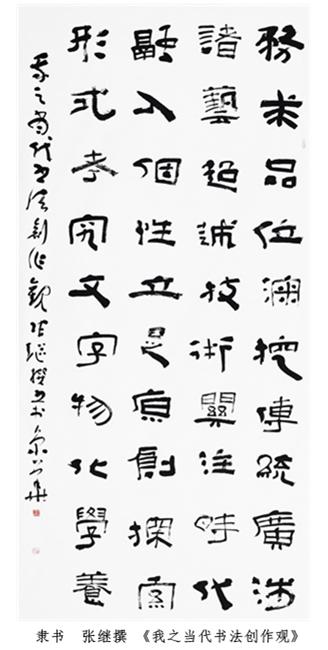 務求品位深挖傳統廣涉
諸藝超越技術關注時代
融入個性立足原創探索
形式考究文字物化學養
我之當代書法創作觀 張繼撰並書於京華
隶书 张继撰 《我之当代书法创作观》